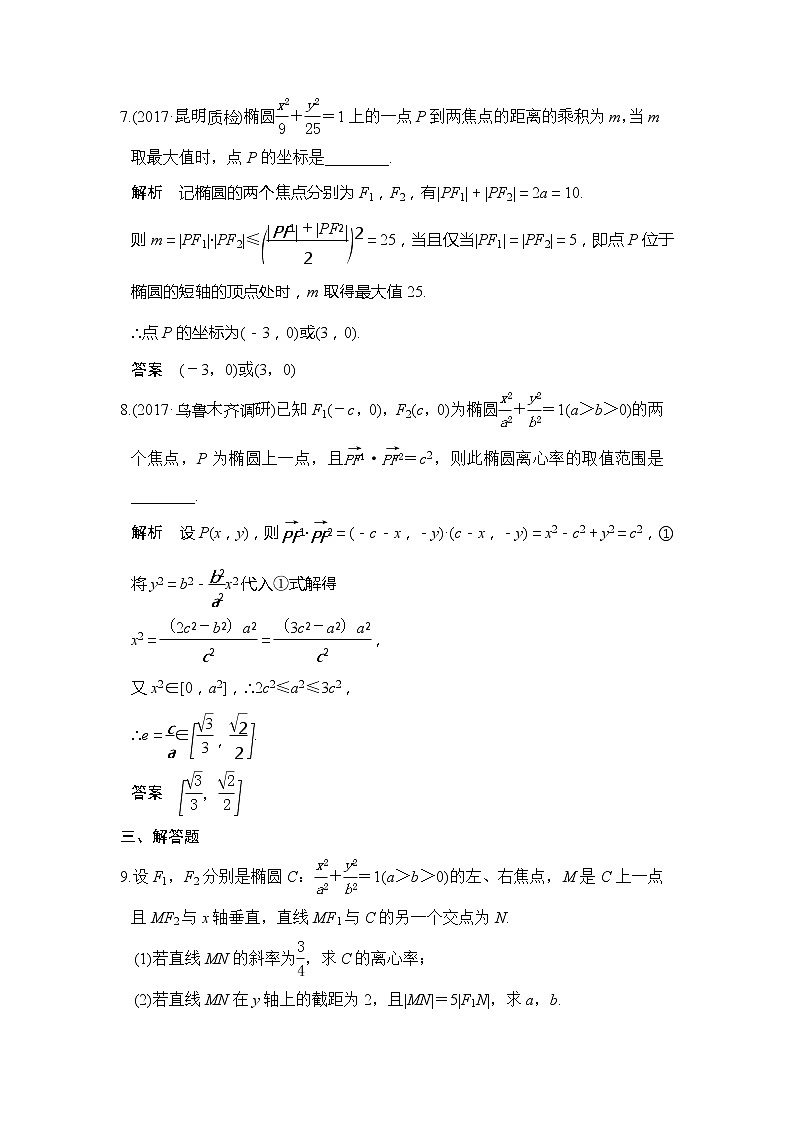 7.(2017·昆明质检)椭圆x²/9+y²/25=1上的一点P到两焦点的距离的乘积为m,当m
取最大值时,点P的坐标是________.
解析 记椭圆的两个焦点分别为F₁,F₂,有|PF₁|+|PF₂|=2a=10.
则m=|PF₁|·|PF₂|≤((|PF₁|+|PF₂|)/2)²=25,当且仅当|PF₁|=|PF₂|=5,即点P位于
椭圆的短轴的顶点处时,m取得最大值25.
∴点P的坐标为(-3,0)或(3,0).
答案 (-3,0)或(3,0)
8.(2017·乌鲁木齐调研)已知F₁(-c,0),F₂(c,0)为椭圆x²/a²+y²/b²=1(a>b>0)的两
个焦点,P为椭圆上一点,且PF₁→·PF₂→=c²,则此椭圆离心率的取值范围是
________.
解析 设P(x,y),则PF₁→·PF₂→=(-c-x,-y)·(c-x,-y)=x²-c²+y²=c²,①
将y²=b²-b²/a²x²代入①式解得
x²=(2c²-b²)a²/c²=(3c²-a²)a²/c²,
又x²∈[0,a²],∴2c²≤a²≤3c²,
∴e=c/a∈[√3/3,√2/2].
答案 [√3/3,√2/2]
三、解答题
9.设F₁,F₂分别是椭圆C:x²/a²+y²/b²=1(a>b>0)的左、右焦点,M是C上一点
且MF₂与x轴垂直,直线MF₁与C的另一个交点为N.
(1)若直线MN的斜率为3/4,求C的离心率;
(2)若直线MN在y轴上的截距为2,且|MN|=5|F₁N|,求a,b.